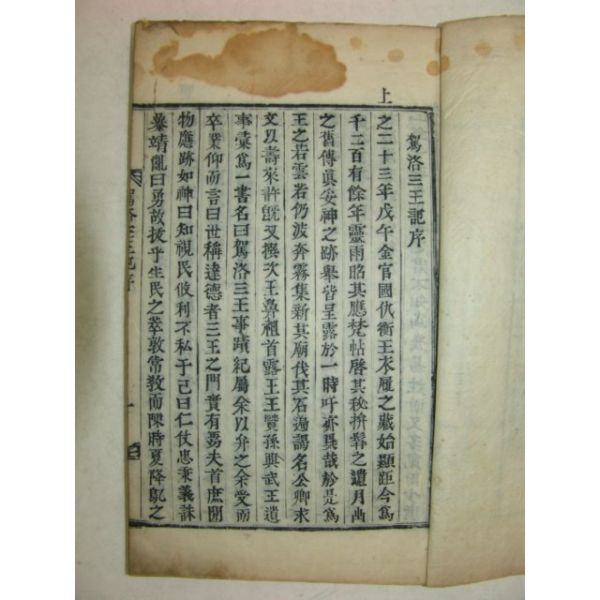 上
駕洛三王記序
之二十三年戊午金官國仇衡王衣履之藏始顯距今爲
千二百有餘年靈雨昭其應梵帖啓其秘拚髾之遺月幽
之舊傳眞安神之跡擧皆呈露於一時吁亦異哉於是爲
王之后雲若仍波奔霧集新其廟伐其石遍謁名公卿求
文以壽來許旣又撰次王鼻祖首露王王賢孫興武王遺
事彙爲一書名曰駕洛三王事蹟紀屬余以弁之余受而
卒業仰而言曰世稱達德者三王之門實有焉夫首庶開
物應跡如神曰知視民攸利不私于己曰仁仗忠秉義誅
暴靖亂曰勇故拔乎生民之萃敦常敎而陳時夏降鄔之
駕洛三王記序
一